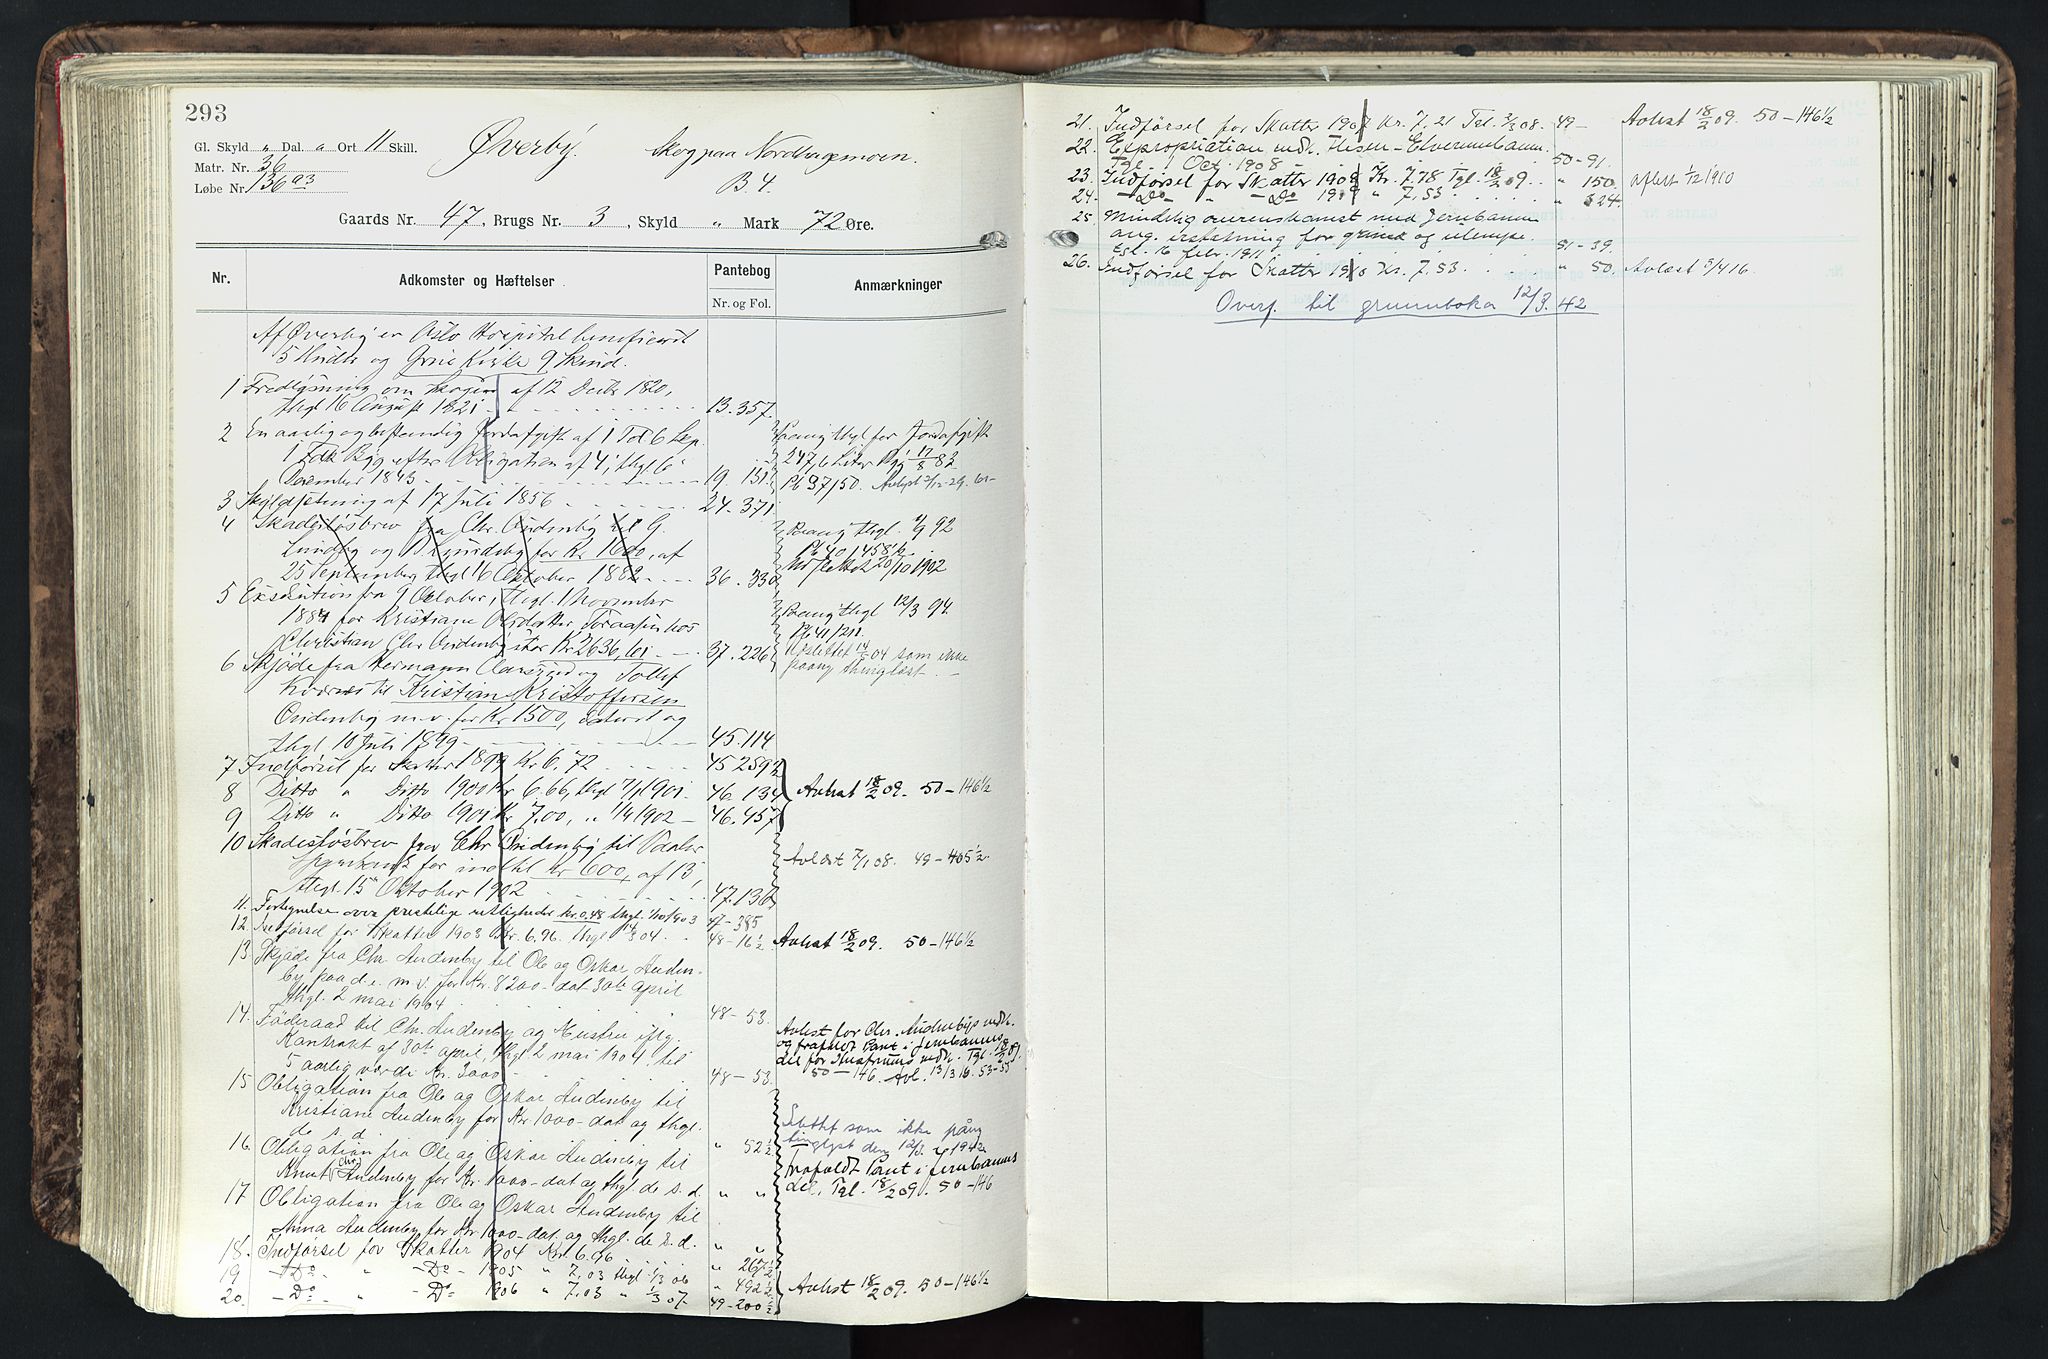 293
Gl. Skyld " Dal. " Ort 11 Skill. Øverby. Skog paa Nordhagemoen.
Matr. Nr. 36 B 4.
Løbe Nr. 136 a3
Gaards Nr. 47, Brugs Nr. 3, Skyld " Mark 72 Øre.
Nr. Adkomster og Hæftelser Pantebog Anmærkninger
Nr. og Fol.
Af Øverby er Oslo Hospital beneficeret
5 Huder og Grue Kirke 9 Skind.
1 Fredlysning om Skogen af 12 Decbr 1820,
thgl 16 August 1821 13.357.
2 En aarlig og bestændig Jordafgift af 1 Td 6 Sep.
1 Fdk Byg efter Obligation af 4, thgl 6
December 1843 19 151.
Paany thgl for Jordafgift
247,6 Liter Byg 17/8 83
Pb 37/50. Avlyst 2/12-29.
3 Skyldsetning af 17 Juli 1856 24.371
4 Skadesløsbrev fra Chr. Oudenby til G.
Lundby og B. for Kr 1600, af
25 September thgl 16 Oktober 1882 36.330
Paany thgl. 9/9 92
Pb 40/458½
Udslettet 20/10 1902
5 Exekution fra 9 Oktober, thgl. 1 November
1884 for Kristiane Olsdatter Toraasen hos
Christian Chr Oudenby stor Kr 2636,61 37.226
Paany thgl 12/3 94.
Pb 41/211
Udslettet 14/ 04 som ikke
paany thinglæst.
6 Skjøde fra Hermann Aaneryd og Tollef
Kvernes til Kristian Kristoffersen
Oudenby m.v. for Kr 1500, dateret og
thgl. 10 Juli 1899 45.114
7 Indførsel for Skatter 1899 Kr 6.72 45 259½
8 Ditto " Ditto 1900 Kr 6.66, thgl 7/1 1901 46.134 Avlæst 18/2 09. 50-146½
9 Ditto " Ditto 1901 Kr 7.00, " 1/9 1902 46.457
10 Skadesløsbrev fra Chr Oudenby til Vdaler
Sparebank for indtil Kr 600, af 13,
thgl. 15 Oktober 1902 47.136 Avlæst 7/1 08. 49-405½
11. Fortegnelse over prestelige rettigheder Kr. 0.48 thgl. 1903 47-385
12. Indførsel for Skatter 1903 Kr. 6.96. thgl 14/3 04. 48-16½ Avlæst 18/2 09. 50-146½
13. Skjøde fra Chr. Audenby til Ole og Oskar Auden-
by paa d. e. m. v. for Kr. 8200- dat 30te april
thgl. 2 mai 1904 48-53.
14. Føderaad til Chr. Audenby og Hustru iflg.
Kontrakt af 30te april, thgl. 2 mai 1904, til
5 aarlig værdi Kr. 3000 48-53.
Avlæst for Chr. Audenbys vedk.
og frafaldt Pant i Jernbanens
del for Hustruens vedk. Tgl. 18/2 09.
50-146. Avl. 13/3 16. 53-55
15 Obligation fra Ole og Oskar Audenby til
Kristiane Audenby for Kr. 1000- dat og thgl.
de s. d. " 52½
16. Obligation fra Ole og Oskar Audenby til
Knut (Chr) Audenby for Kr. 1000- dat og thgl. de s. d. " "
17 Obligation fra Ole og Oskar Audenby til
Anna Audenby for Kr. 1000- dat. og thgl. de s. d. " "
Slettet som ikke påny
tinglyst den 12/3. 1942
Frafaldt Pant i Jernbanens
del. Tgl. 18/2 09. 50-146
18. Indførsel for Skatter 1904 Kr. 6.96 " 267½
19 - Do - " - Do - 1905 " 7.03 thgl. 1/3 06 " 492½
20. - Do - " - Do - 1906 " 7.03 " 1/3 07. 49-200½ Avlæst 18/2 09. 50-146½
21. Indførsel for Skatter 1907 Kr. 7,21 Tgl. 2/3 08. 49- Avlæst 18/2 09. 50-146½
22. Expropriation vedk. Flisen-Elverumbanen.
Tgl. 1 Oct. 1908 50-91.
23. Indførsel for Skatter 1908 Kr. 7.78 Tgl. 18/2 09. " 150. Aflæst 1/12 1910
24. - Do - " - Do 1909 " 7,53. " 324.
25. Mindelig overenskomst med Jernbanen
ang. erstatning for grind og ulempe.
Tgl. 16 febr. 1911. 51-39.
26. Indførsel for Skatter 1910 Kr. 7,53. " 50. Avlæst 5/4 16.
Overf. til grunnboka 12/3. 42